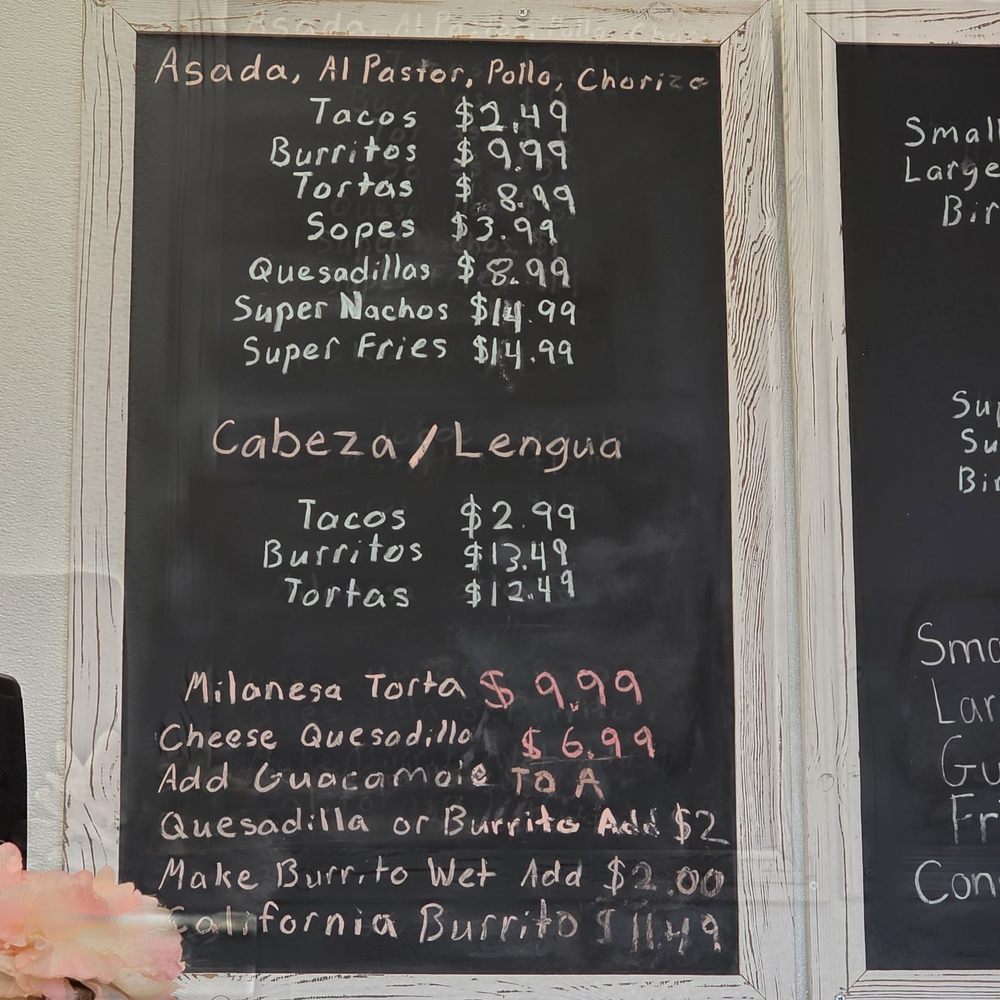 Asada, Al Pastor, Pollo, Chorizo
Tacos $2.49
Burritos $9.99
Tortas $8.99
Sopes $3.99
Quesadillas $8.99
Super Nachos $14.99
Super Fries $14.99
Cabeza/Lengua
Tacos $2.99
Burritos $13.49
Tortas $12.49
Milanesa Torta $9.99
Cheese Quesadilla $6.99
Add Guacamole TO A
Quesadilla or Burrito Add $2
Make Burrito Wet Add $2.00
California Burrito $11.49
Small
Large
Bir
Su
Bir
Sma
Lar
Gu
Fr
Con